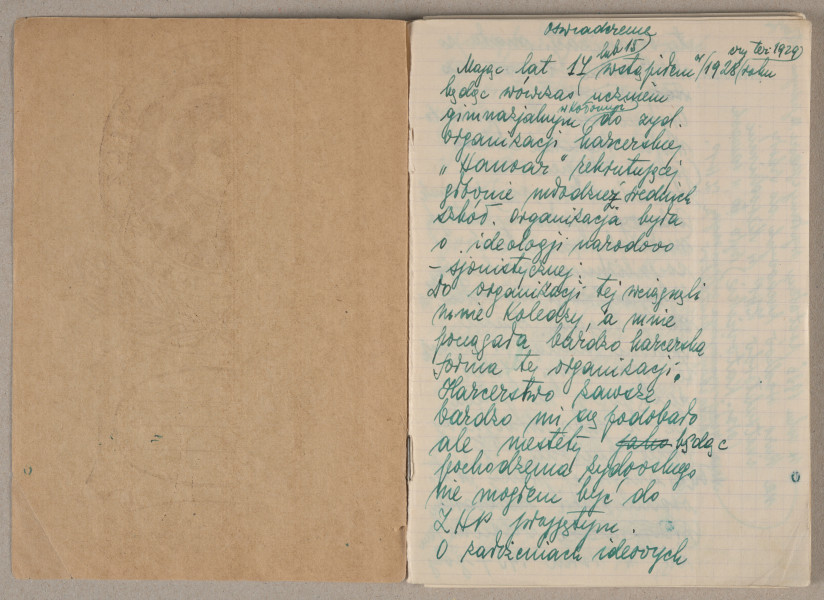 Oświadczenie
lub 15 czy też 1929
Mając lat 17 wstąpiłem w /1928/ roku
będąc wówczas uczniem
gimnazjalnym w Kołomyi do żyd.
organizacji harcerskiej
„Hanoar" rekrutującej
głównie młodzież z średnich
szkół. Organizacja była
o ideologji narodowo
- sjonistycznej.
Do organizacji tej wciągnęli
mnie koledzy, a mnie
pociągała bardzo harcerska
forma tej organizacji.
Harcerstwo zawsze
bardzo mi się podobało
ale niestety jako będąc
pochodzenia żydowskiego
nie mogłem być do
ZHP przyjętym.
O założeniach ideowych